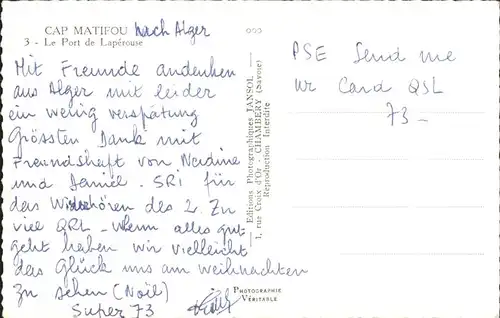 CAP MATIFOU nach Alger
3 - Le Port de Lapérouse
Mit Freunde andenken
aus Alger mit leider
ein wenig verspätung
Grössten Dank mit
Freundshaft von Nadine
und Daniel. SRI für
das hören des 2. Zu
viel QRL - Wenn alles gut
geht haben wir vielleicht
das Glück uns am Weihnachten
zu sehen (Noël)
Super 73
Editions Photographiques JANSOL
1, rue Croix d'Or - CHAMBÉRY (Savoie)
Reproduction Interdite
PHOTOGRAPHIE
VÉRITABLE
PSE Send me
ur Card QSL
73 -